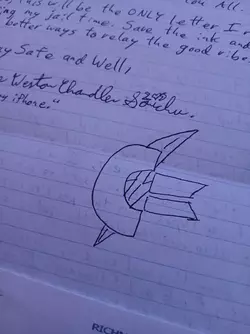 this will be the ONLY letter I
ing my jail time. Save the ink and
better ways to relay the good vibe
ay Safe and Well,
Weston Chandler
y iPhone."
RICHM